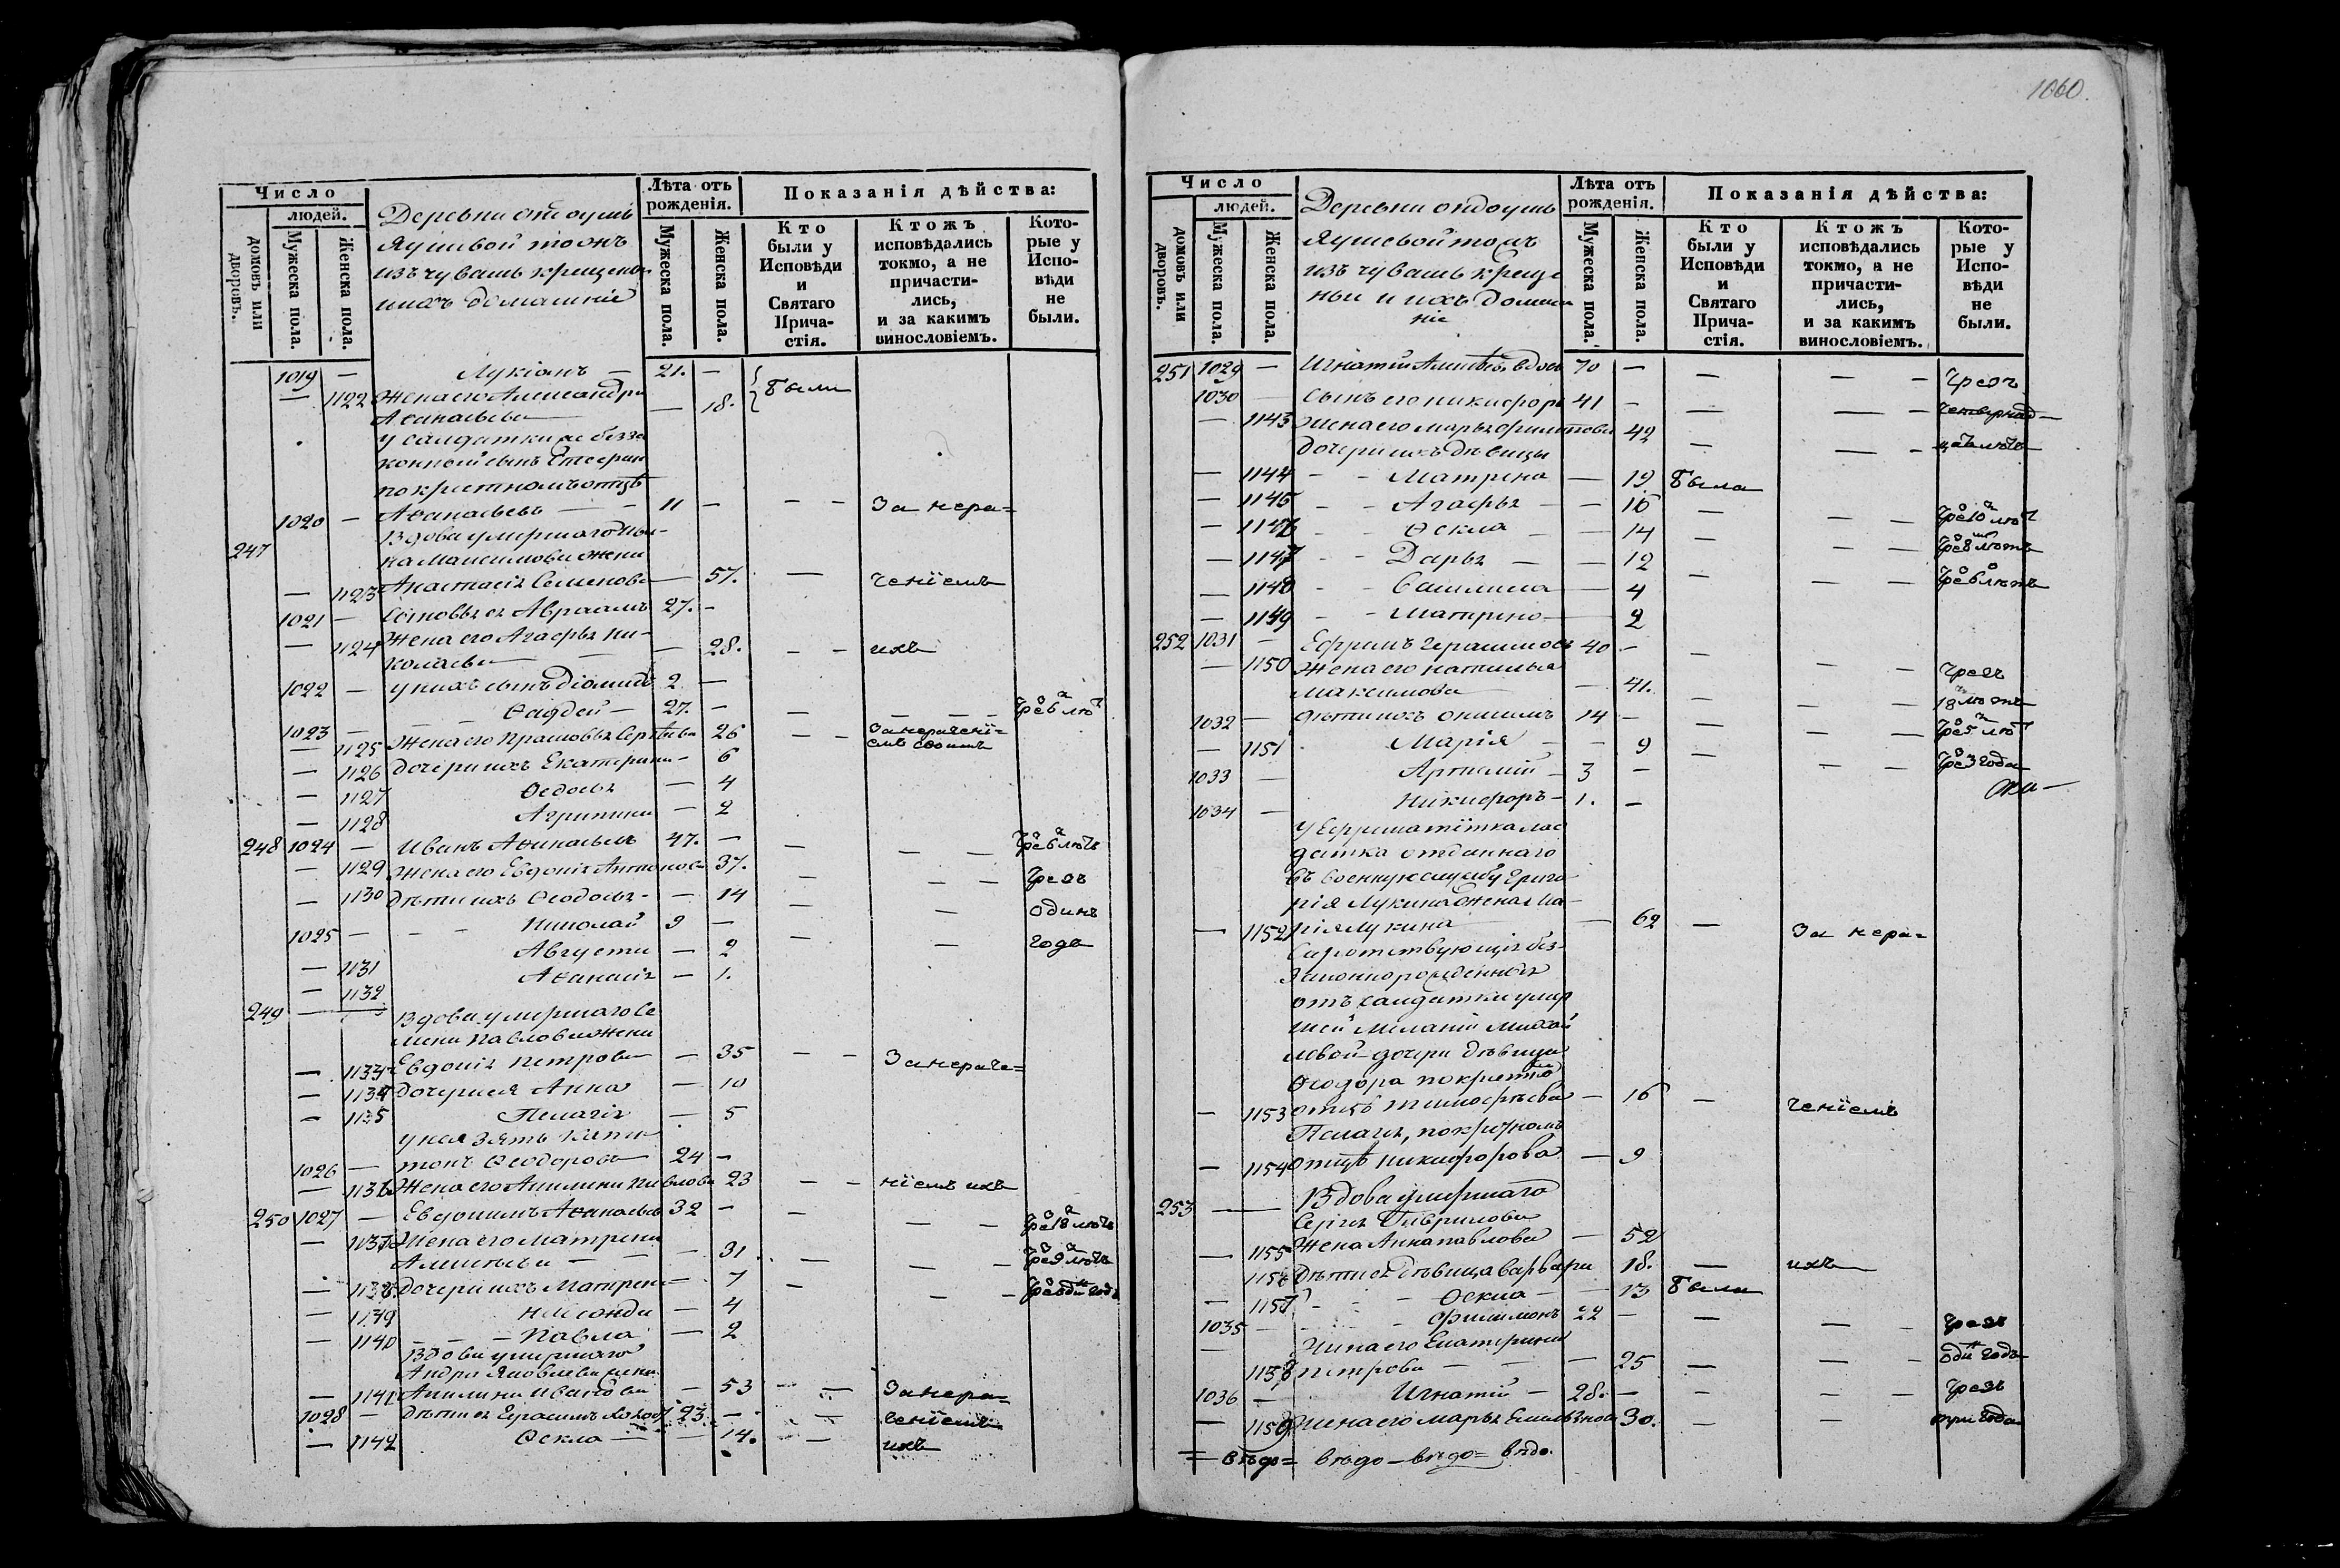 1060.
Число
людей.
домовъ или дворовъ.
Мужеска пола.
Женска пола.
Деревни
Яушевой тожъ
изъ чувашъ крещены
и ихъ домашніе
Лѣта отъ рожденія.
Мужеска пола.
Женска пола.
Показанія дѣйства:
Кто были у Исповѣди и Святаго Прича- стія.
Ктожъ исповѣдались токмо, а не причасти- лись, и за какимъ винословіемъ.
Кото- рые у Испо- вѣди не были.
1019 — Лукіанъ — 21. —
— 1122 Жена его Александра
Аѳанасьева — 18. были
у солдатки ее безза
конной сынъ
по крестномъ отцѣ
1020 — Аѳанасьевъ — 11 — — — За нера=
247 Вдова умершаго
ка Максимова жена
— 1123 Анастасія Семенова — 57. — ченіемъ
1021 — Сыновья ея Авраамъ 27. —
— 1124 Жена его Агафья Ни-
колаева — 28. — — ихъ
1022 — у нихъ сынъ Діомидъ 2 —
1023 — Ѳаддей — 27. — — — — — чрез 6 лѣт
— 1125 Жена его Прасковья Сергѣева 26 — — За нерачені=
емъ своимъ
— 1126 дочери ихъ Екатерина — 6
— 1127 Ѳедосья — 4
— 1128 Агрипина — 2
248 1024 — Иванъ Аѳанасьевъ 47. — — — — чрез 6 лѣтъ
— 1129 Жена его Евдокія Антонова 37. — — — чрезъ
— 1130 дѣти ихъ Ѳеодосья — 14 — — одинъ
1025 — — — Николай 9 — — — годъ
— 1131 Августа — 2
— 1132 Аѳанасія — 1.
249 — — Вдова умершаго Се
мена Павлова жена
— 1133 Евдокія Петрова — 35 — — За нераче=
— 1134 дочери ея Анна — 10
— 1135 Пелагія — 5
у нея зять Капи
1026 — тонъ Ѳеодоровъ 24 —
— 1136 Жена его Акилина Павлова 23 — — ніемъ ихъ
250 1027 — Евдокимъ Аѳанасьевъ 32 — — — — чрез 18 лѣтъ
— 1137 Жена его Матрена
Алексѣева — — 31 — — — чрез 9 лѣтъ
— 1138 дочери ихъ Матрена — 7 — — — чрез один годъ
— 1139 — 4
— 1140 — — — Павла — 2
Вдова умершаго
Андрея Яковлева жена
— 1141 Акилина Иванова — 53 — — За нера=
1028 — дѣти ея Герасимъ 23 — — ченіемъ
— 1142 Ѳекла — — 14. — ихъ
Число
людей.
домовъ или дворовъ.
Мужеска пола.
Женска пола.
Деревни
Яушевой тожъ
изъ чувашъ креще
ны и ихъ домаш
ніе
Лѣта отъ рожденія.
Мужеска пола.
Женска пола.
Показанія дѣйства:
Кто были у Исповѣди и Святаго Прича- стія.
Ктожъ исповѣдались токмо, а не причасти- лись, и за какимъ винословіемъ.
Кото- рые у Испо- вѣди не были.
251 1029 — Игнатій Алексѣевъ вдовъ 70 — — — — чрезъ
1030 — Сынъ его Никифоръ 41 — — — — четвернад—
— 1143 Жена его Марья Филипова 42 — — — цать лѣтъ
дочери ихъ дѣвицы
— 1144 — — Матрена — 19 была
— 1145 — — Агафья — — 16 — — — чрез 10 лѣт
— 1146 — — Ѳекла — — 14 — — — чрез 8 лѣтъ
— 1147 — — Дарья — — 12 — — — чрез 6 лѣтъ
— 1148 — — Василиса — 4
— 1149 — — Матрена — 2
252 1031 — Ефремъ Герасимовъ 40 — — — — чрезъ
— 1150 Жена его Наталья
Максимова — — 41. — — — 18 лѣтъ
1032 — дѣти ихъ Онисимъ 14 — — — — чрез 5 лѣт
— 1151 Марія — — 9 — — — чрез 3 года
1033 — Артемій — 3 —
1034 — Никифоръ — 1. —
у Ефрема тетка сол
датка отданнаго
въ военную службу Григо
рія Лукина жена Ма-
— 1152 рія Лукина — 62 — За нера=
Сиротствующія без-
законнорожденной
отъ солдатки умер
шей Меланіи Михай
ловой дочери дѣвица
Ѳеодора по крестно
— 1153 отцѣ Тимоѳеева — 16 — ченіемъ
Пелагея, по крестномъ
— 1154 отцѣ Никифорова — 9
253 — Вдова умершаго
Сергія Гаврилова
— 1155 Жена Анна Павлова — 52
1156 Дѣти ея дѣвица Варвара 18. — ихъ
— 1157 — — — Ѳекла — 13 была
1035 — — Филимонъ 22 — — — — чрезъ
Жена его Екатерина
— 1158 Петрова — — — 25 — — — один годъ
1036 — Игнатій — 28. — — — — чрезъ
— 1159 Жена его Марья 30. — — три года